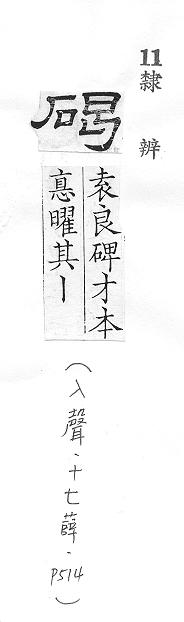 11 隸辨
袁良碑才本
惪曜其丨
（入聲．十七薛．P514）